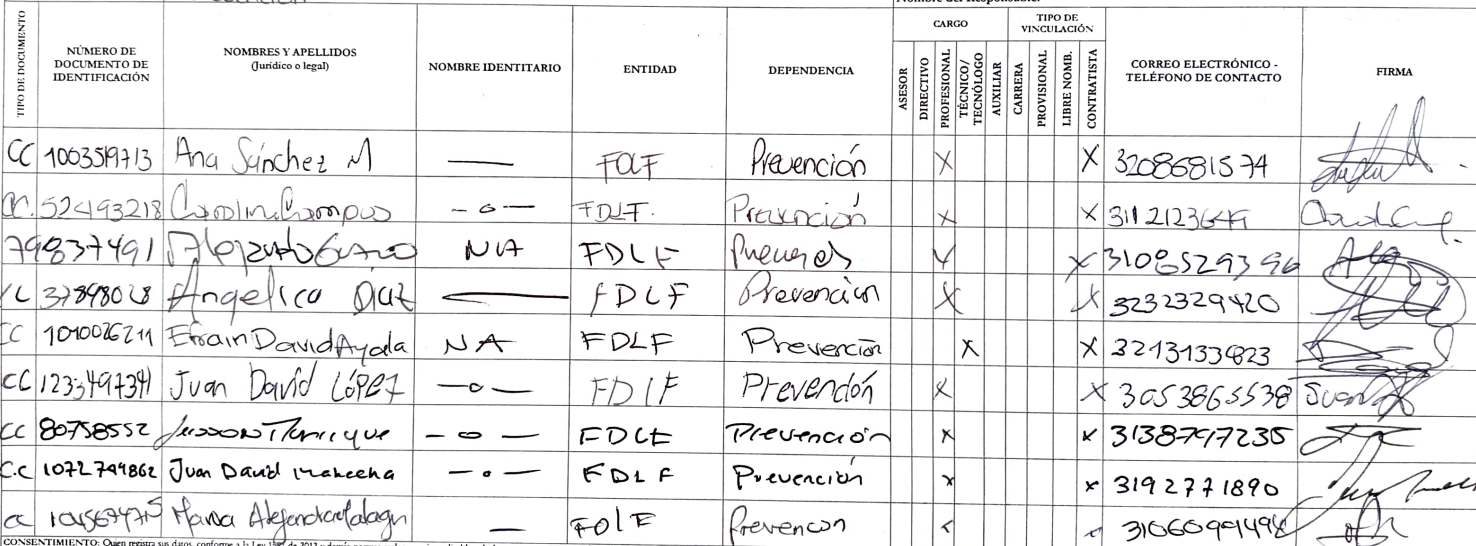 Nombre del Responsable:
CARGO TIPO DE VINCULACIÓN
TIPO DE DOCUMENTO NÚMERO DE DOCUMENTO DE IDENTIFICACIÓN NOMBRES Y APELLIDOS (Jurídico o legal) NOMBRE IDENTITARIO ENTIDAD DEPENDENCIA ASESOR DIRECTIVO PROFESIONAL TÉCNICO/ TECNÓLOGO AUXILIAR CARRERA PROVISIONAL LIBRE NOMB. CONTRATISTA CORREO ELECTRÓNICO - TELÉFONO DE CONTACTO FIRMA
CC 1003519713 Ana Sánchez M — FDLF Prevención X X 3208681574
CC. 52493218 Carolina Campos - o - FDLF. Prevención X X 3112123649
79837491 NA FDLF X X 3108529396
37898028 Angelica Diaz — FDLF Prevención X X 3232329420
CC 1010026211 Efrain David Ayala NA FDLF Prevención X X 3213133823
CC 1233497341 Juan David López - o - FDLF Prevención X X 3053865538 Juan
CC 80758552 Manrique - o - FDLF Prevención X X 3138797235
C.C 1072749862 Juan David - o - FDLF Prevención X X 3192771890
CC Maria Alejandra Malagon — FDLF Prevencon X X 3106099149
CONSENTIMIENTO: Quien registra sus datos, conforme a la Ley 1581 de 2012